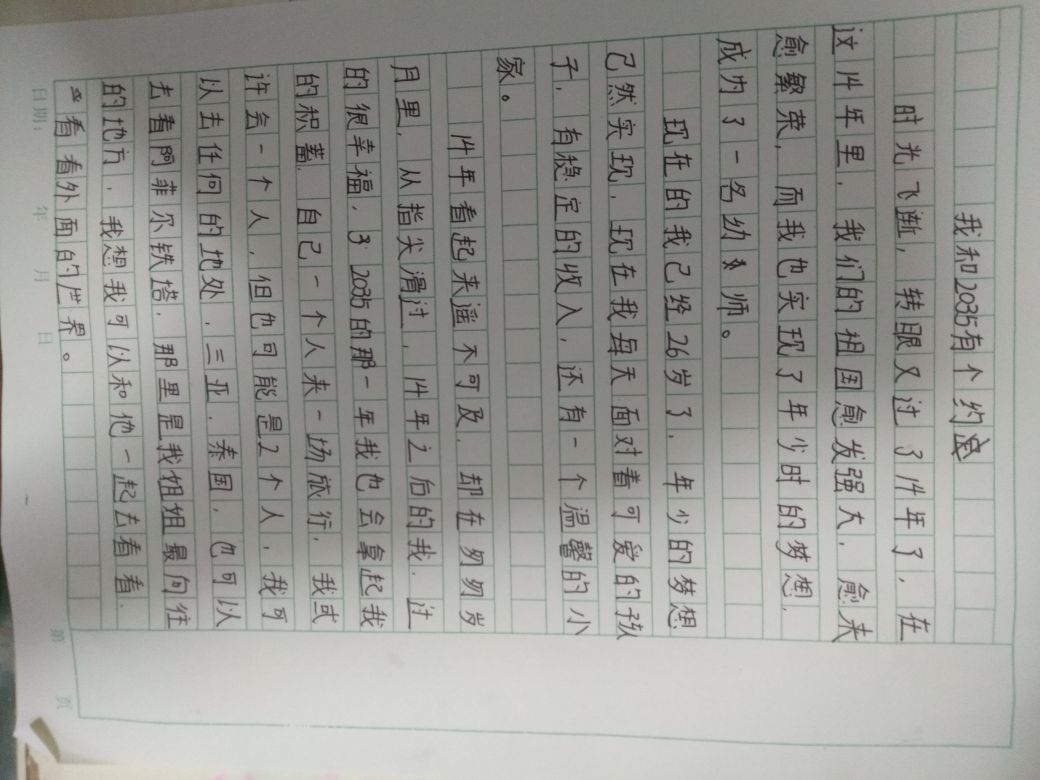 我和2035有个约定
时光飞逝，转眼又过了14年了，在
这14年里，我们的祖国愈发强大，愈来
愈繁荣，而我也实现了年少时的梦想，
成为了一名幼师。
现在的我已经26岁了，年少的梦想
已然实现，现在我每天面对着可爱的孩
子，有稳定的收入，还有一个温馨的小
家。
14年看起来遥不可及，却在匆匆岁
月里，从指尖滑过，14年之后的我，过
的很幸福，2035的那一年我也会拿起我
的积蓄，自己一个人来一场旅行，我或
许会一个人，但也可能是2个人，我可
以去任何的地处，三亚，泰国，也可以
去看阿菲尔铁塔，那里是我姐姐最向往
的地方，我想我可以和他一起去看看，
看看外面的世界。
日期：　年　月　日
第　页